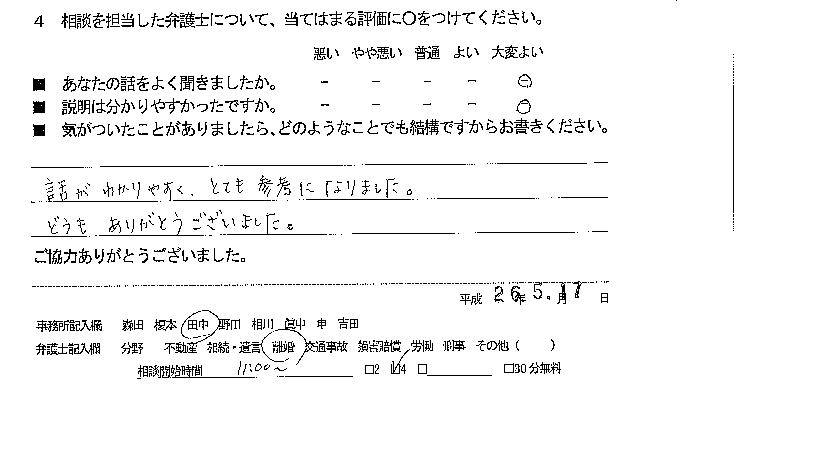 4 相談を担当した弁護士について、当てはまる評価に〇をつけてください。
悪い やや悪い 普通 よい 大変よい
■ あなたの話をよく聞きましたか。 － － － － －
■ 説明は分かりやすかったですか。 － － － － －
■ 気がついたことがありましたら、どのようなことでも結構ですからお書きください。
話が わかりやすく、とても 参考に なりました。
どうも ありがとうございました。
ご協力ありがとうございました。
平成 26年 5.月 17 日
事務所記入欄 森田 榎本 田中 野田 相川 眞中 申 吉田
弁護士記入欄 分野 不動産 相続・遺言 離婚 交通事故 損害賠償 労働 刑事 その他（ ）
相談開始時間 11:00～ □2 ☑4 □ □30分無料